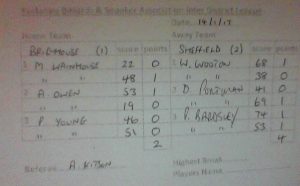 Yorkshire Billiards & Snooker Association Inter District League
Date 14/1/17
Home Team Away Team
BRIGHOUSE (1) score points SHEFFIELD (2) score points
1 M WAINHOUSE 22 0 1 W. WOOTON 68 1
" " 48 1 " " 38 0
2 A OWEN 53 1 2 D. 41 0
" " 19 0 " " 69 1
3 P. YOUNG 46 0 3 P. BARDSLEY 74 1
" " 51 0 " " 53 1
2 4
Referee A. KITSON Highest Break
Players Name